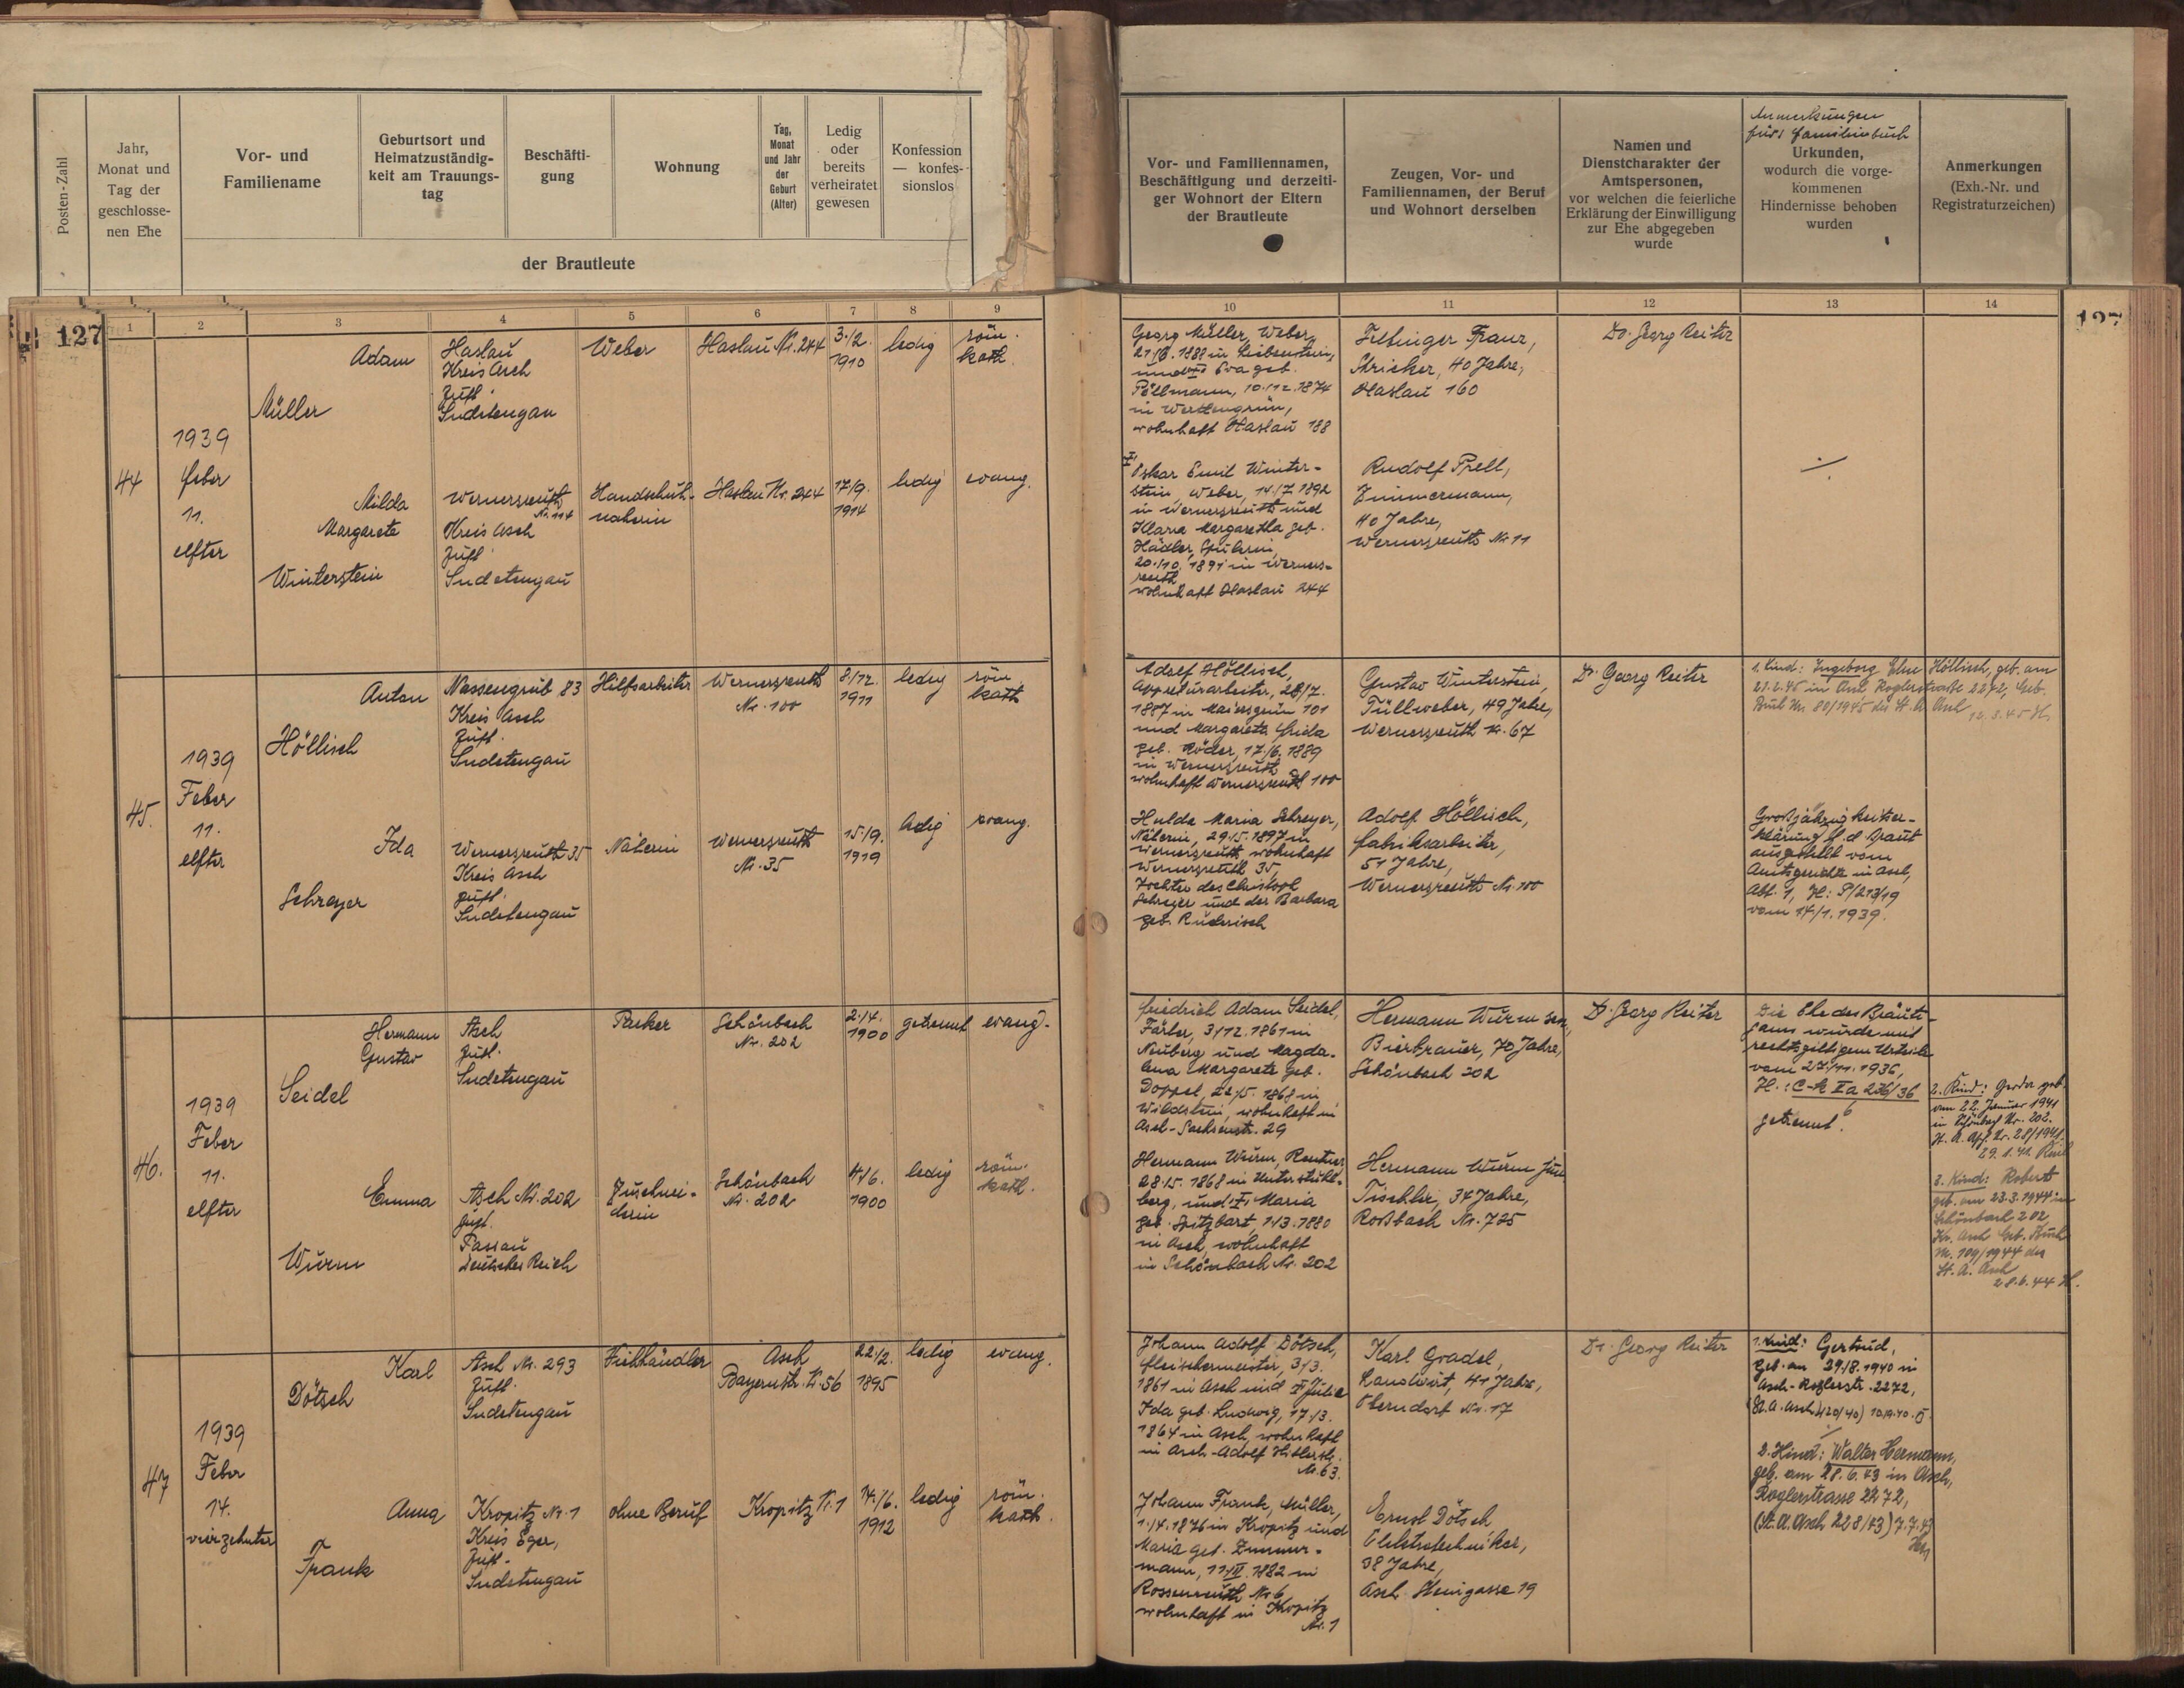 Posten-Zahl
Jahr,
Monat und
Tag der
geschlosse-
nen Ehe
Vor- und
Familiename
Geburtsort und
Heimatzuständig-
keit am Trauungs-
tag
Beschäfti-
gung
Wohnung
Tag,
Monat
und Jahr
der
Geburt
(Alter)
Ledig
oder
bereits
verheiratet
gewesen
Konfession
— konfes-
sionslos
der Brautleute
Vor- und Familiennamen,
Beschäftigung und derzeiti-
ger Wohnort der Eltern
der Brautleute
Zeugen, Vor- und
Familiennamen, der Beruf
und Wohnort derselben
Namen und
Dienstcharakter der
Amtspersonen,
vor welchen die feierliche
Erklärung der Einwilligung
zur Ehe abgegeben
wurde
Anmerkungen
fürs Familienbuch
Urkunden,
wodurch die vorge-
kommenen
Hindernisse behoben
wurden
Anmerkungen
(Exh.-Nr. und
Registraturzeichen)
127
1 2 3 4 5 6 7 8 9
10 11 12 13 14
127
44
1939
Feber
11.
elfter
Adam
Müller
Haslau
Kreis Asch
Zust.
Sudetengau
Weber
Haslau Nr. 244
3./2.
1910
ledig
röm.
kath.
Milda
Margareta
Winterstein
Wernersreuth
Nr. 114
Kreis Asch
Zust.
Sudetengau
Handschuh-
näherin
Haslau Nr. 244
17/9.
1914
ledig
evang.
Georg Müller, Weber,
21/6. 1888 in Liebenstein,
und Eva geb.
Pöllmann, 10./12. 1874
in
wohnhaft Haslau 188
Oskar Emil Winter-
stein, Weber, 14./7. 1892
in Wernersreuth und
Klara Margaretha geb.
Hädler, Spulerin,
20./10. 1891 in Werners-
reuth
wohnhaft Haslau 244
Franz,
Stricker, 40 Jahre,
Haslau 160
Rudolf Prell,
Zimmermann,
40 Jahre,
Wernersreuth Nr. 11
Dr. Georg Reiter
45.
1939
Feber
11.
elfter
Anton
Höllisch
Nassengrub 83
Kreis Asch
Zust.
Sudetengau
Hilfsarbeiter
Wernersreuth
Nr. 100
8/12.
1911
ledig
röm.
kath
Ida
Schreyer
Wernersreuth 35
Kreis Asch
Zust.
Sudetengau
Näherin
Wernersreuth
Nr. 35
15./9.
1919
ledig
evang.
Adolf Höllisch,
Appreturarbeiter, 28/7.
1887 in Maiersgrün 101
und Margareta Frida
geb. Röder, 17./6. 1889
in Wernersreuth
wohnhaft Wernersreuth 100
Hulda Maria Schreyer,
Näherin, 29./5. 1897 in
Wernersreuth, wohnhaft
Wernersreuth 35,
Tochter des Christof
Schreyer und der Barbara
geb. Ruderisch
Gustav Winterstein,
Tüllweber, 49 Jahre,
Wernersreuth Nr. 67
Adolf Höllisch,
Fabriksarbeiter,
51 Jahre,
Wernersreuth Nr. 100
Dr. Georg Reiter
1. Kind: Ingeborg Else Höllisch, geb. am
21.2.45 in Asch Roglerstraße 2272, Geb.
Buch Nr. 80/1945 des St. A. Asch
12.3.45 H.
Großjährigkeitser-
klärung f. d. Braut
ausgestellt vom
Amtsgerichte in Asch,
Abt. 1, Zl.: P/213/19
vom 14/1. 1939.
46.
1939
Feber
11.
elfter
Hermann
Gustav
Seidel
Asch
Zust.
Sudetengau
Packer
Schönbach
Nr. 202
2./4.
1900
getrennt
evang.
Emma
Wurm
Asch Nr. 202
Zust.
Passau
Deutsches Reich
Zuschnei-
derin
Schönbach
Nr. 202
4/6.
1900
ledig
röm.
kath.
Friedrich Adam Seidel,
Färber, 3/12. 1861 in
Neuberg und Magda-
lena Margareta geb.
Doppel, 1868 in
Wildstein, wohnhaft in
Asch-Sachsenstr. 29
Hermann Wurm, Rentner,
28./5. 1868 in
berg, und Maria
geb. Spitzbart, 1./3. 1880
in Asch, wohnhaft
in Schönbach Nr. 202
Hermann Wurm sen.,
Bierbrauer, 70 Jahre,
Schönbach 202
Hermann Wurm jun.
Tischler, 34 Jahre,
Roßbach Nr. 725
Dr. Georg Reiter
Die Ehe des Bräuti-
gams wurde mit
rechtsgiltigem Urteile
vom 27./11. 1936,
Zl.: C-k I a 236/36
getrennt.
2. Kind: Gerda geb.
am 22. Januar 1941
in Schönbach Nr. 202.
St. A. Asch Nr. 28/1941.
29.1.41.
3. Kind: Robert
geb. am 23.3.1944 in
Schönbach 202
Kr. Asch Geb. Buch
Nr. 109/1944 des
St. A. Asch
28.6.44 H.
47
1939
Feber
14.
vierzehnter
Karl
Dötsch
Asch Nr. 293
Zust.
Sudetengau
Viehhändler
Asch
Bayernstr. Nr. 56
22/2.
1895
ledig
evang.
Anna
Frank
Kropitz Nr. 1
Kreis Eger,
Zust.
Sudetengau
ohne Beruf
Kropitz Nr. 1
14./6.
1912
ledig
röm.
kath.
Johann Adolf Dötsch,
Fleischermeister, 3/3.
1861 in Asch und Julie
Ida geb. Ludwig, 17./3.
1864 in Asch, wohnhaft
in Asch-Adolf Hitlerstr.
Nr. 63.
Johann Frank, Müller,
1./4. 1876 in Kropitz und
Maria geb. Zimmer-
mann, 1882 in
Rossenreuth Nr. 6
wohnhaft in Kropitz
Nr. 1
Karl Gradel,
Landwirt, 41 Jahre,
Oberndorf Nr. 17
Ernst Dötsch,
Elektrotechniker,
38 Jahre,
Asch Steingasse 19
Dr. Georg Reiter
1. Kind: Gertrud,
geb. am 29./8. 1940 in
Asch-Roglerstr. 2272,
2. Kind: Walter Hermann,
geb. am 28.6.43 in Asch,
Roglerstrasse 2272,
(St. A. Asch 228/43) 7.7.43